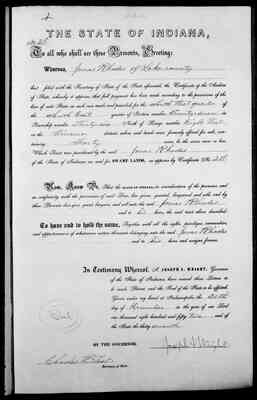 THE STATE OF INDIANA,
To all who shall see these Presents, Greeting:
Whereas, James Rhodes of Lake County
has filed with the Secretary of State of the State aforesaid, the Certificate of the Auditor
of State, whereby it appears, that full payment has been made according to the provisions of the
laws of said State in such case made and provided for the South West quarter
of the South East quarter of Section number
Township number Thirty-two North of Range number Eight West
in the Winamac district, when said lands were formerly offered for sale, con-
taining Forty acres, be the same more or less.
Which Tract was purchased by the said James Rhodes
of the State of Indiana as and for SWAMP LANDS, as appears by Certificate No.
Now, Know Ye, That the STATE OF INDIANA, in consideration of the premises and
in conformity with the provisions of said Laws, has given, granted, bargained and sold, and by
these Presents does give, grant, bargain, and sell unto the said James Rhodes
and to his heirs, the said tract above described:
To have and to hold the same, Together with all the rights, privileges, immunities
and appurtenances of whatsoever nature thereunto belonging, unto the said James Rhodes
and to his heirs and assigns forever.
In Testimony Whereof, I, JOSEPH A. WRIGHT, Governor
of the State of Indiana, have caused these Letters to
be made Patent, and the Seal of the State to be affixed.
Given under my hand at Indianapolis, the
day of November in the year of our Lord
one thousand eight hundred and fifty two and
of the State the thirty seventh
BY THE GOVERNOR,
Joseph A Wright
Seal
Charles H. Test
Secretary of State.